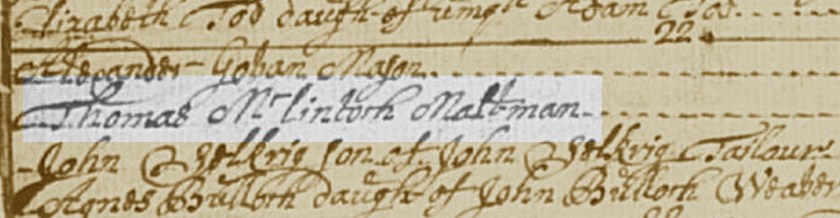 Elizabeth Tod daugh. of umqll Adam Tod
22
Alexander Goban Mason
Thomas Mr lintoch Maltman
John Selkrig son of John Selkrig Taylour
Agnes Bulloch daugh. of John Bulloch Weaber